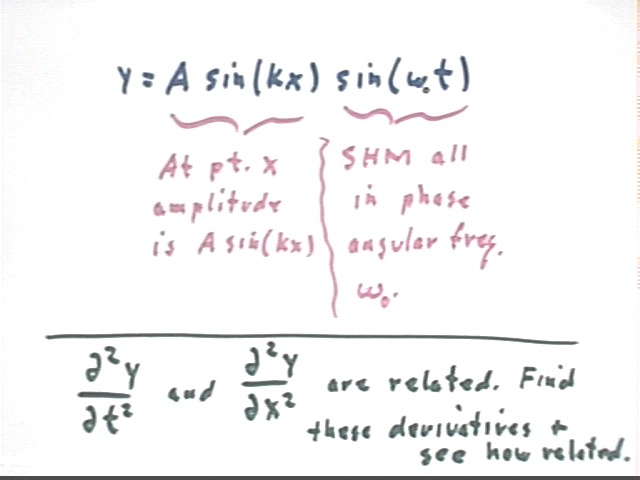 y = A sin(kx) sin(ω₀t)
At pt. x
amplitude
is A sin(kx)
SHM all
in phase
angular freq.
ω₀.
∂²y/∂t² and ∂²y/∂x² are related. Find
these derivatives +
see how related.